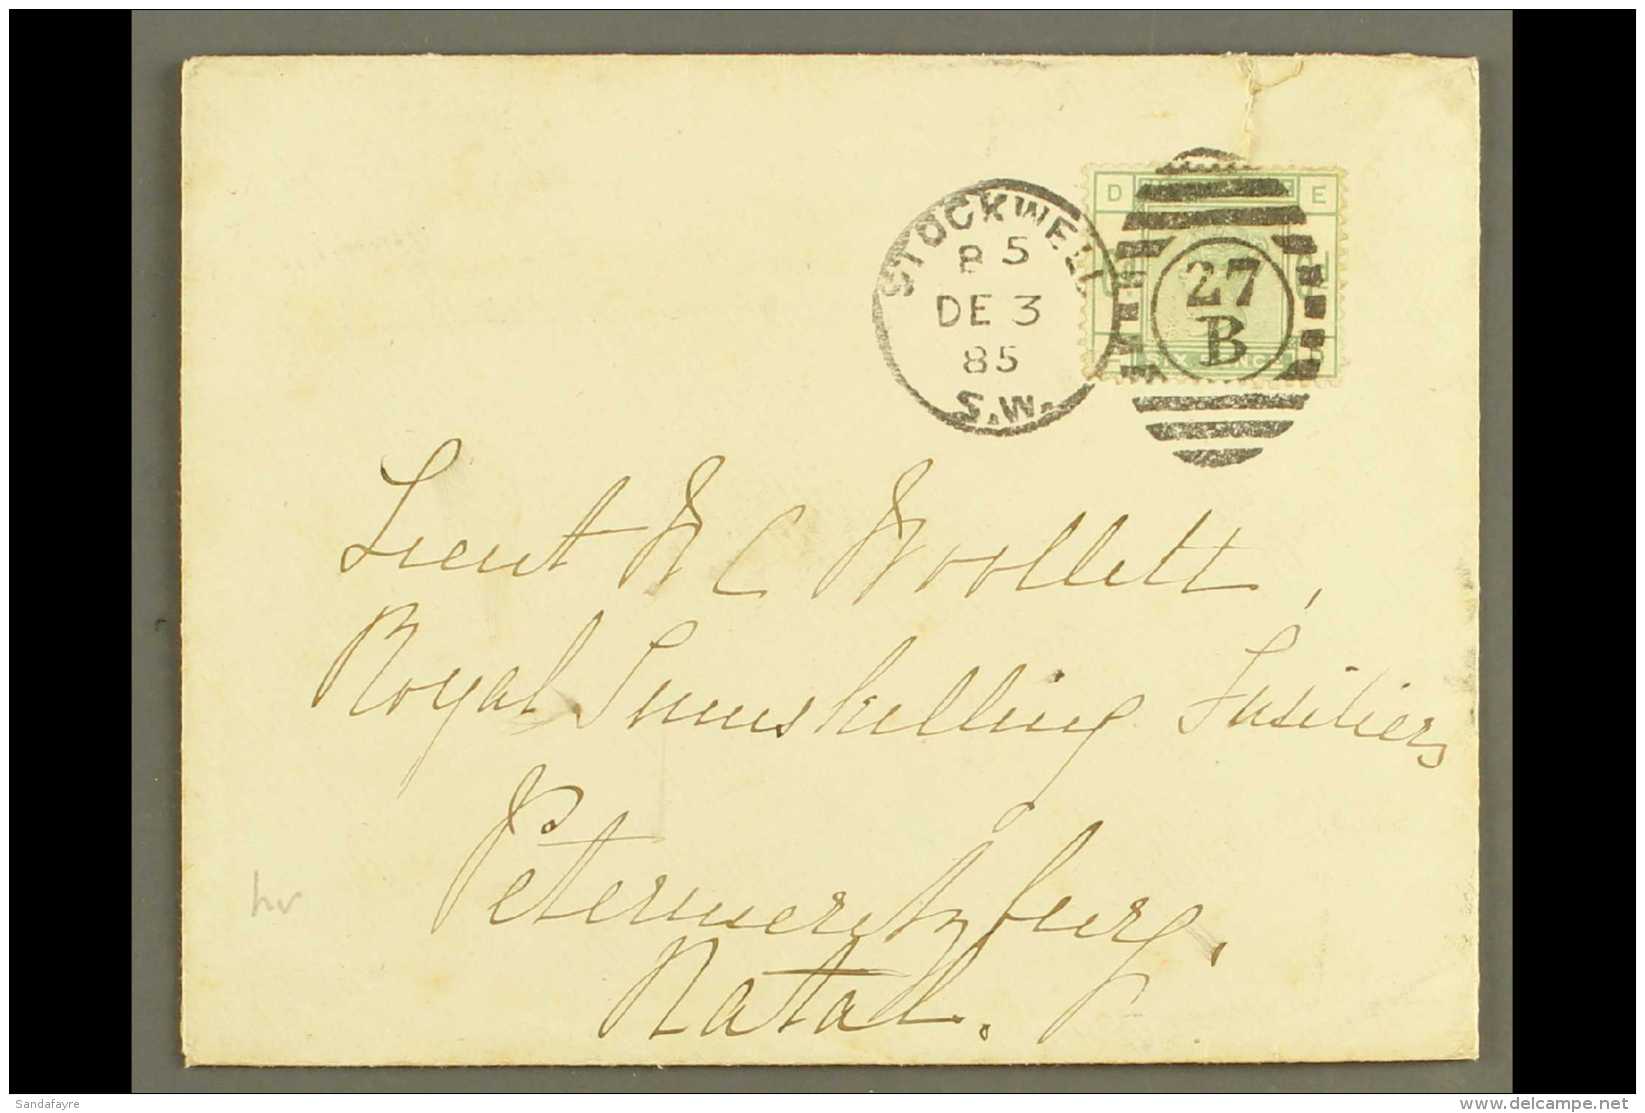 STOCKWELL
B 5
DE 3
85
S.W.
27
B
D E
SIX PENCE
Lieut W C Woollett,
Royal Inniskilling Fusiliers
Petermeritzburg,
Natal.
hv
Sandafayre
www.delcampe.net